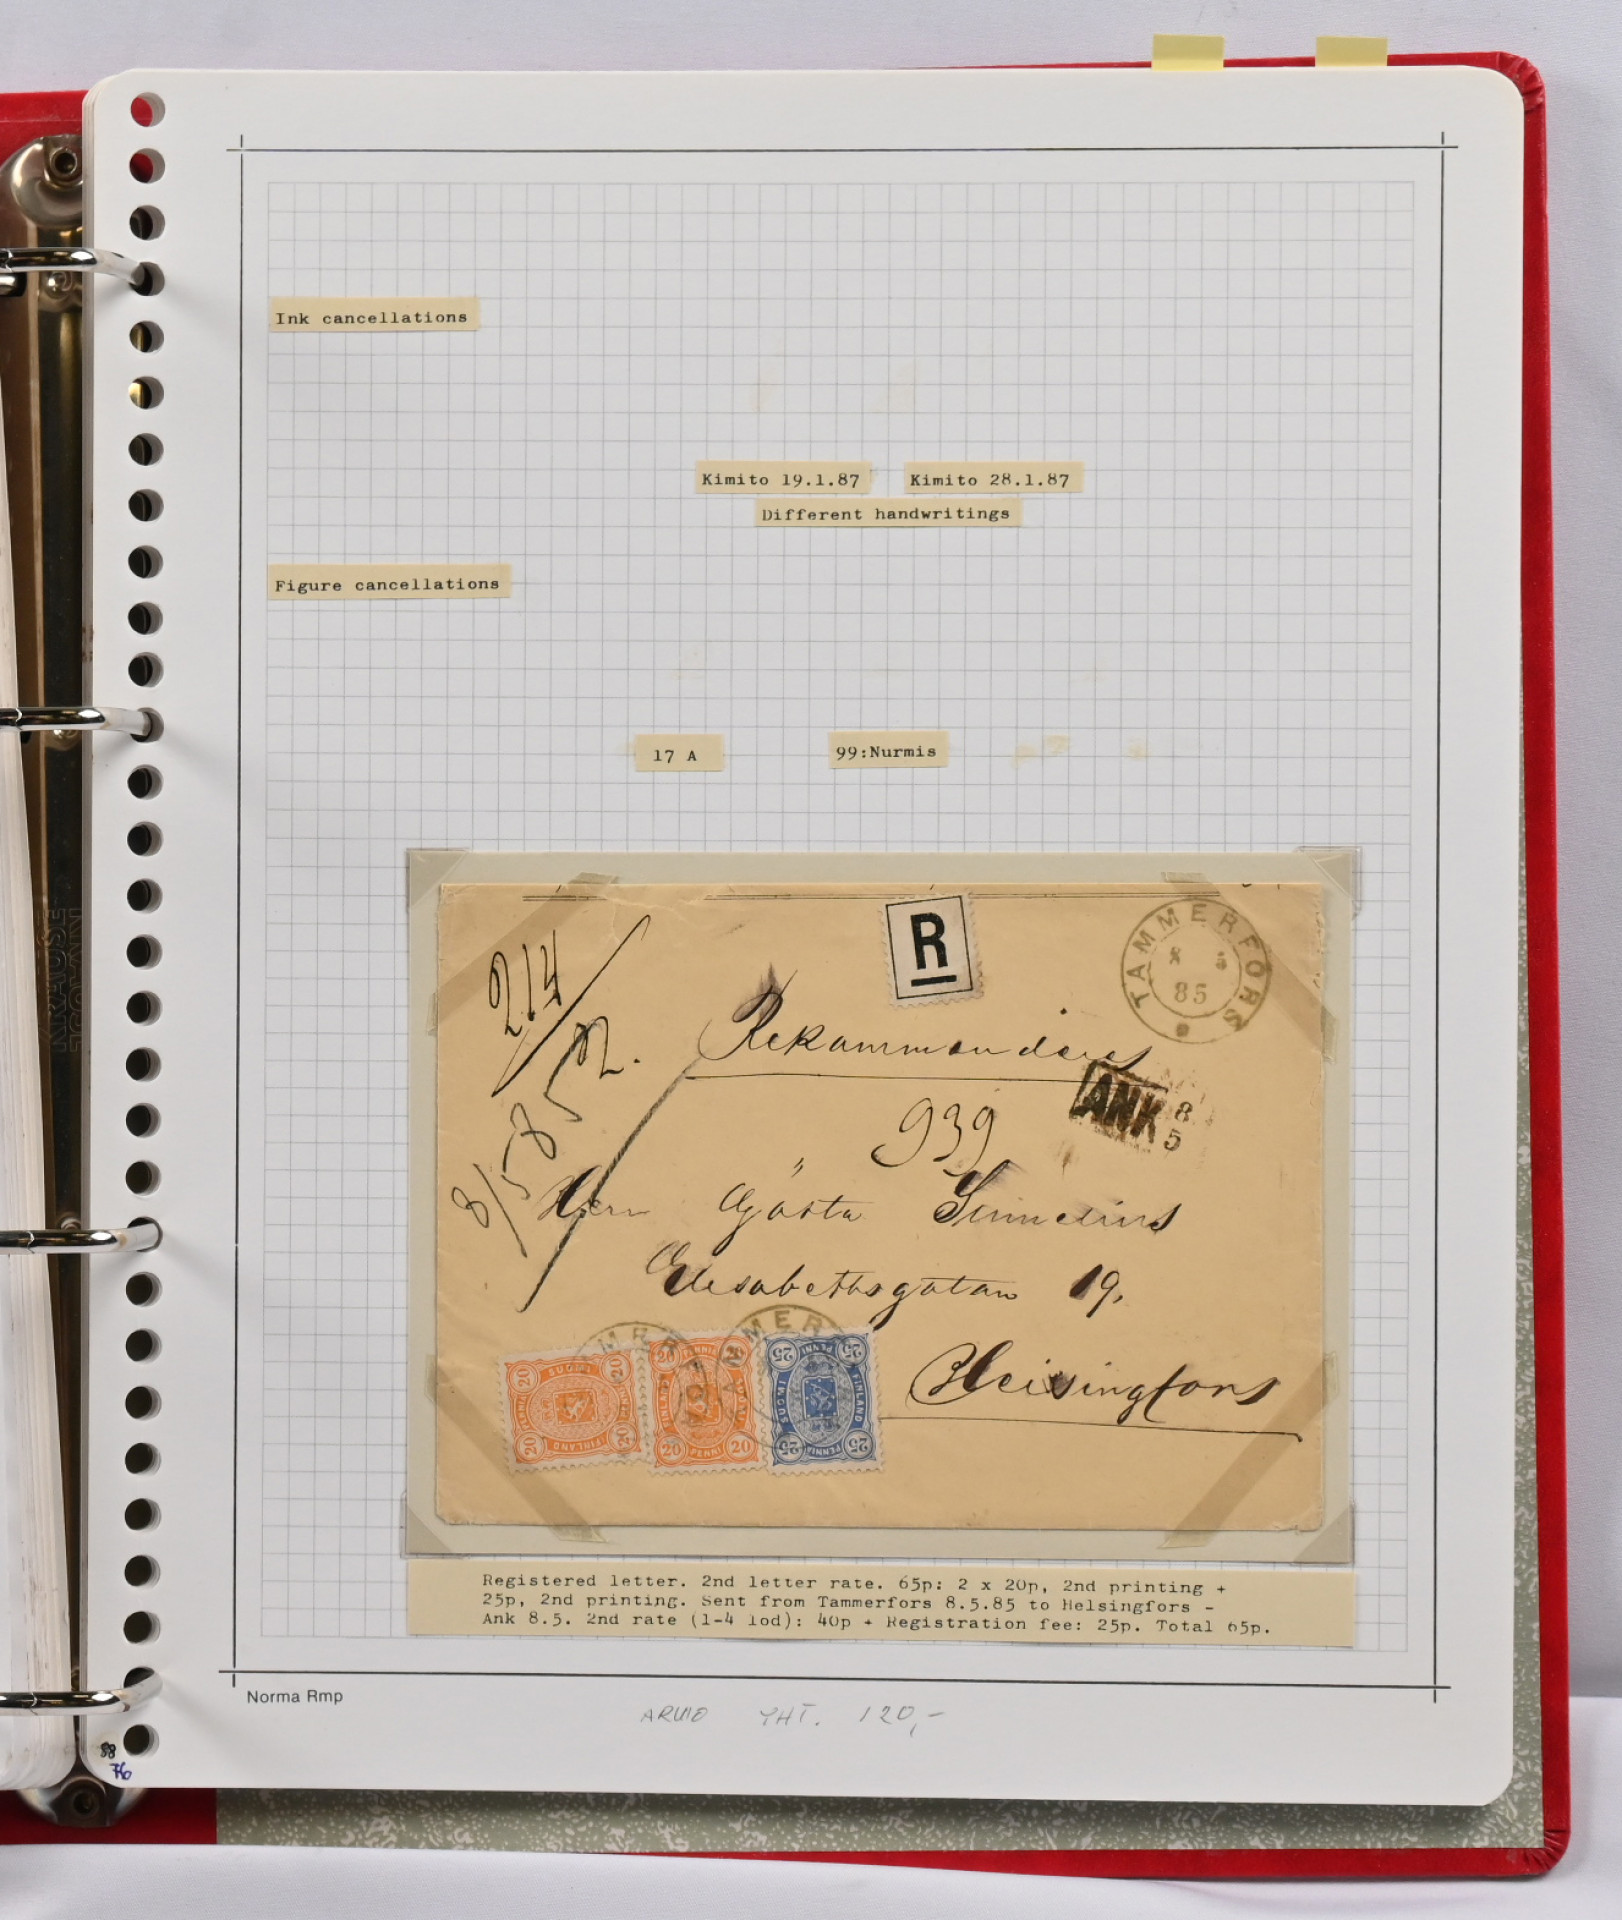 Ink cancellations
Kimito 19.1.87
Kimito 28.1.87
Different handwritings
Figure cancellations
17 A
99:Nurmis
214
R
TAMMERFORS
85
Rekammanderas
ANK 8
5
939
8/5 85
Herr Gösta
Elisabethsgatan 19.
Helsingfors
20 SUOMI 20
20 FINLAND 20
20 20
20 PENNI 20
25 PENNI 25
FINLAND
25 PENNIA 25
Registered letter. 2nd letter rate. 65p: 2 x 20p, 2nd printing +
25p, 2nd printing. Sent from Tammerfors 8.5.85 to Helsingfors -
Ank 8.5. 2nd rate (1-4 lod): 40p + Registration fee: 25p. Total 65p.
Norma Rmp
ARVIO YHT. 120,-
88
76